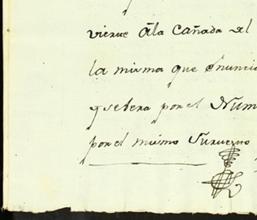 vierne âla Cañada del
la misma que enunci
y se vera por el Num
por el mismo Surueno